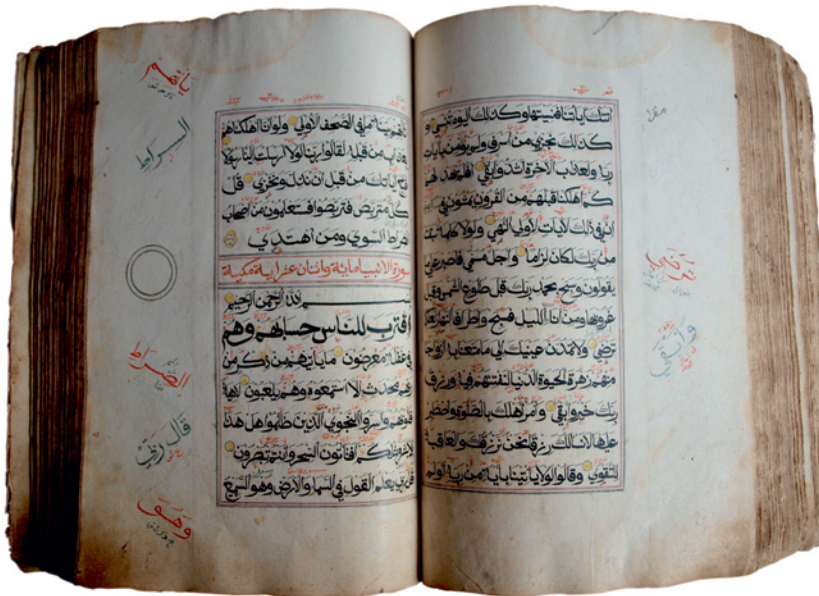 اتتك اياتنا فنسيتها وكذلك اليوم تنسى و
كذلك نجزي من اسرف ولم يؤمن بايات
ربه ولعذاب الاخرة اشد وابقى افلم يهد لهم
كم اهلكنا قبلهم من القرون يمشون في
ان في ذلك لايات لاولي النهى ولولا كلمة سبقت
من ربك لكان لزاما واجل مسمى فاصبر على
يقولون وسبح بحمد ربك قبل طلوع الشمس وقبل
غروبها ومن اناء الليل فسبح واطراف النهار لعلك
ترضى ولا تمدن عينيك الى ما متعنا به ازواجا
منهم زهرة الحيوة الدنيا لنفتنهم فيه ورزق
ربك خير وابقى وامر اهلك بالصلوة واصطبر
عليها لا نسالك رزقا نحن نرزقك والعاقبة
للتقوى وقالوا لولا ياتينا باية من ربه اولم
ترضى
وابقى
تاتهم بينة ما في الصحف الاولى ولو انا اهلكناهم
بعذاب من قبله لقالوا ربنا لولا ارسلت الينا رسولا
فنتبع اياتك من قبل ان نذل ونخزى قل
كل متربص فتربصوا فستعلمون من اصحاب
الصراط السوي ومن اهتدى
سورة الانبيا ماية واثنان عشر اية مكية
بسم الله الرحمن الرحيم
اقترب للناس حسابهم وهم
في غفلة معرضون ما ياتيهم من ذكر من
ربهم محدث الا استمعوه وهم يلعبون لاهية
قلوبهم واسروا النجوى الذين ظلموا هل هذا
الا بشر مثلكم افتاتون السحر وانتم تبصرون
قل ربي يعلم القول في السماء والارض وهو السميع
ياتهم
السراط
الصراط
قال ربي
وهو